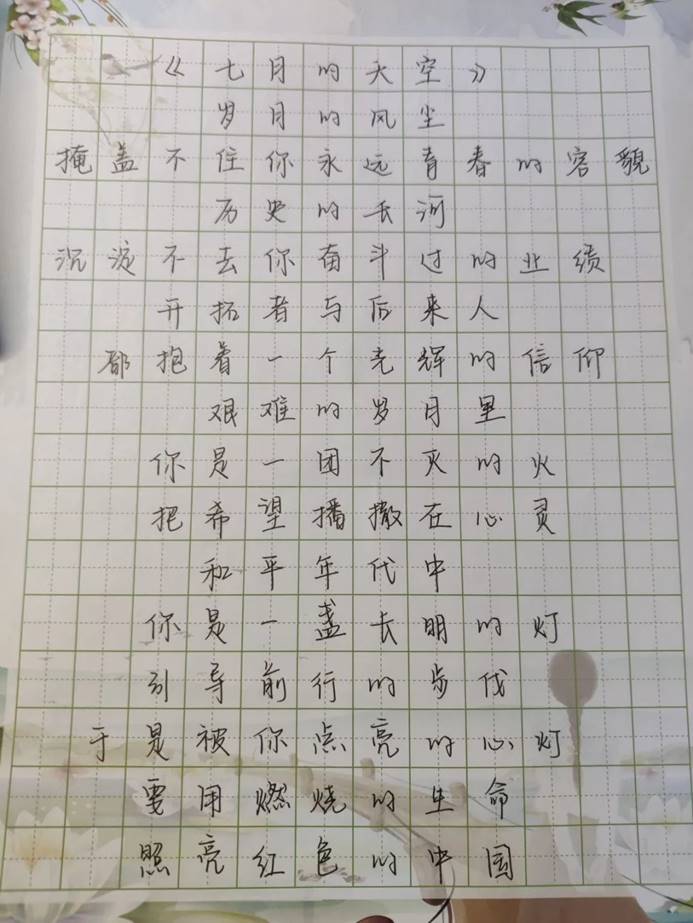 《七月的天空》
岁月的风尘
掩盖不住你永远青春的容貌
历史的长河
沉淀不去你奋斗过的业绩
开拓者与后来人
都抱着一个光辉的信仰
艰难的岁月里
你是一团不灭的火
把希望播撒在心灵
和平年代中
你是一盏长明的灯
引导前行的步伐
于是被你点亮的心灯
要用燃烧的生命
照亮红色的中国